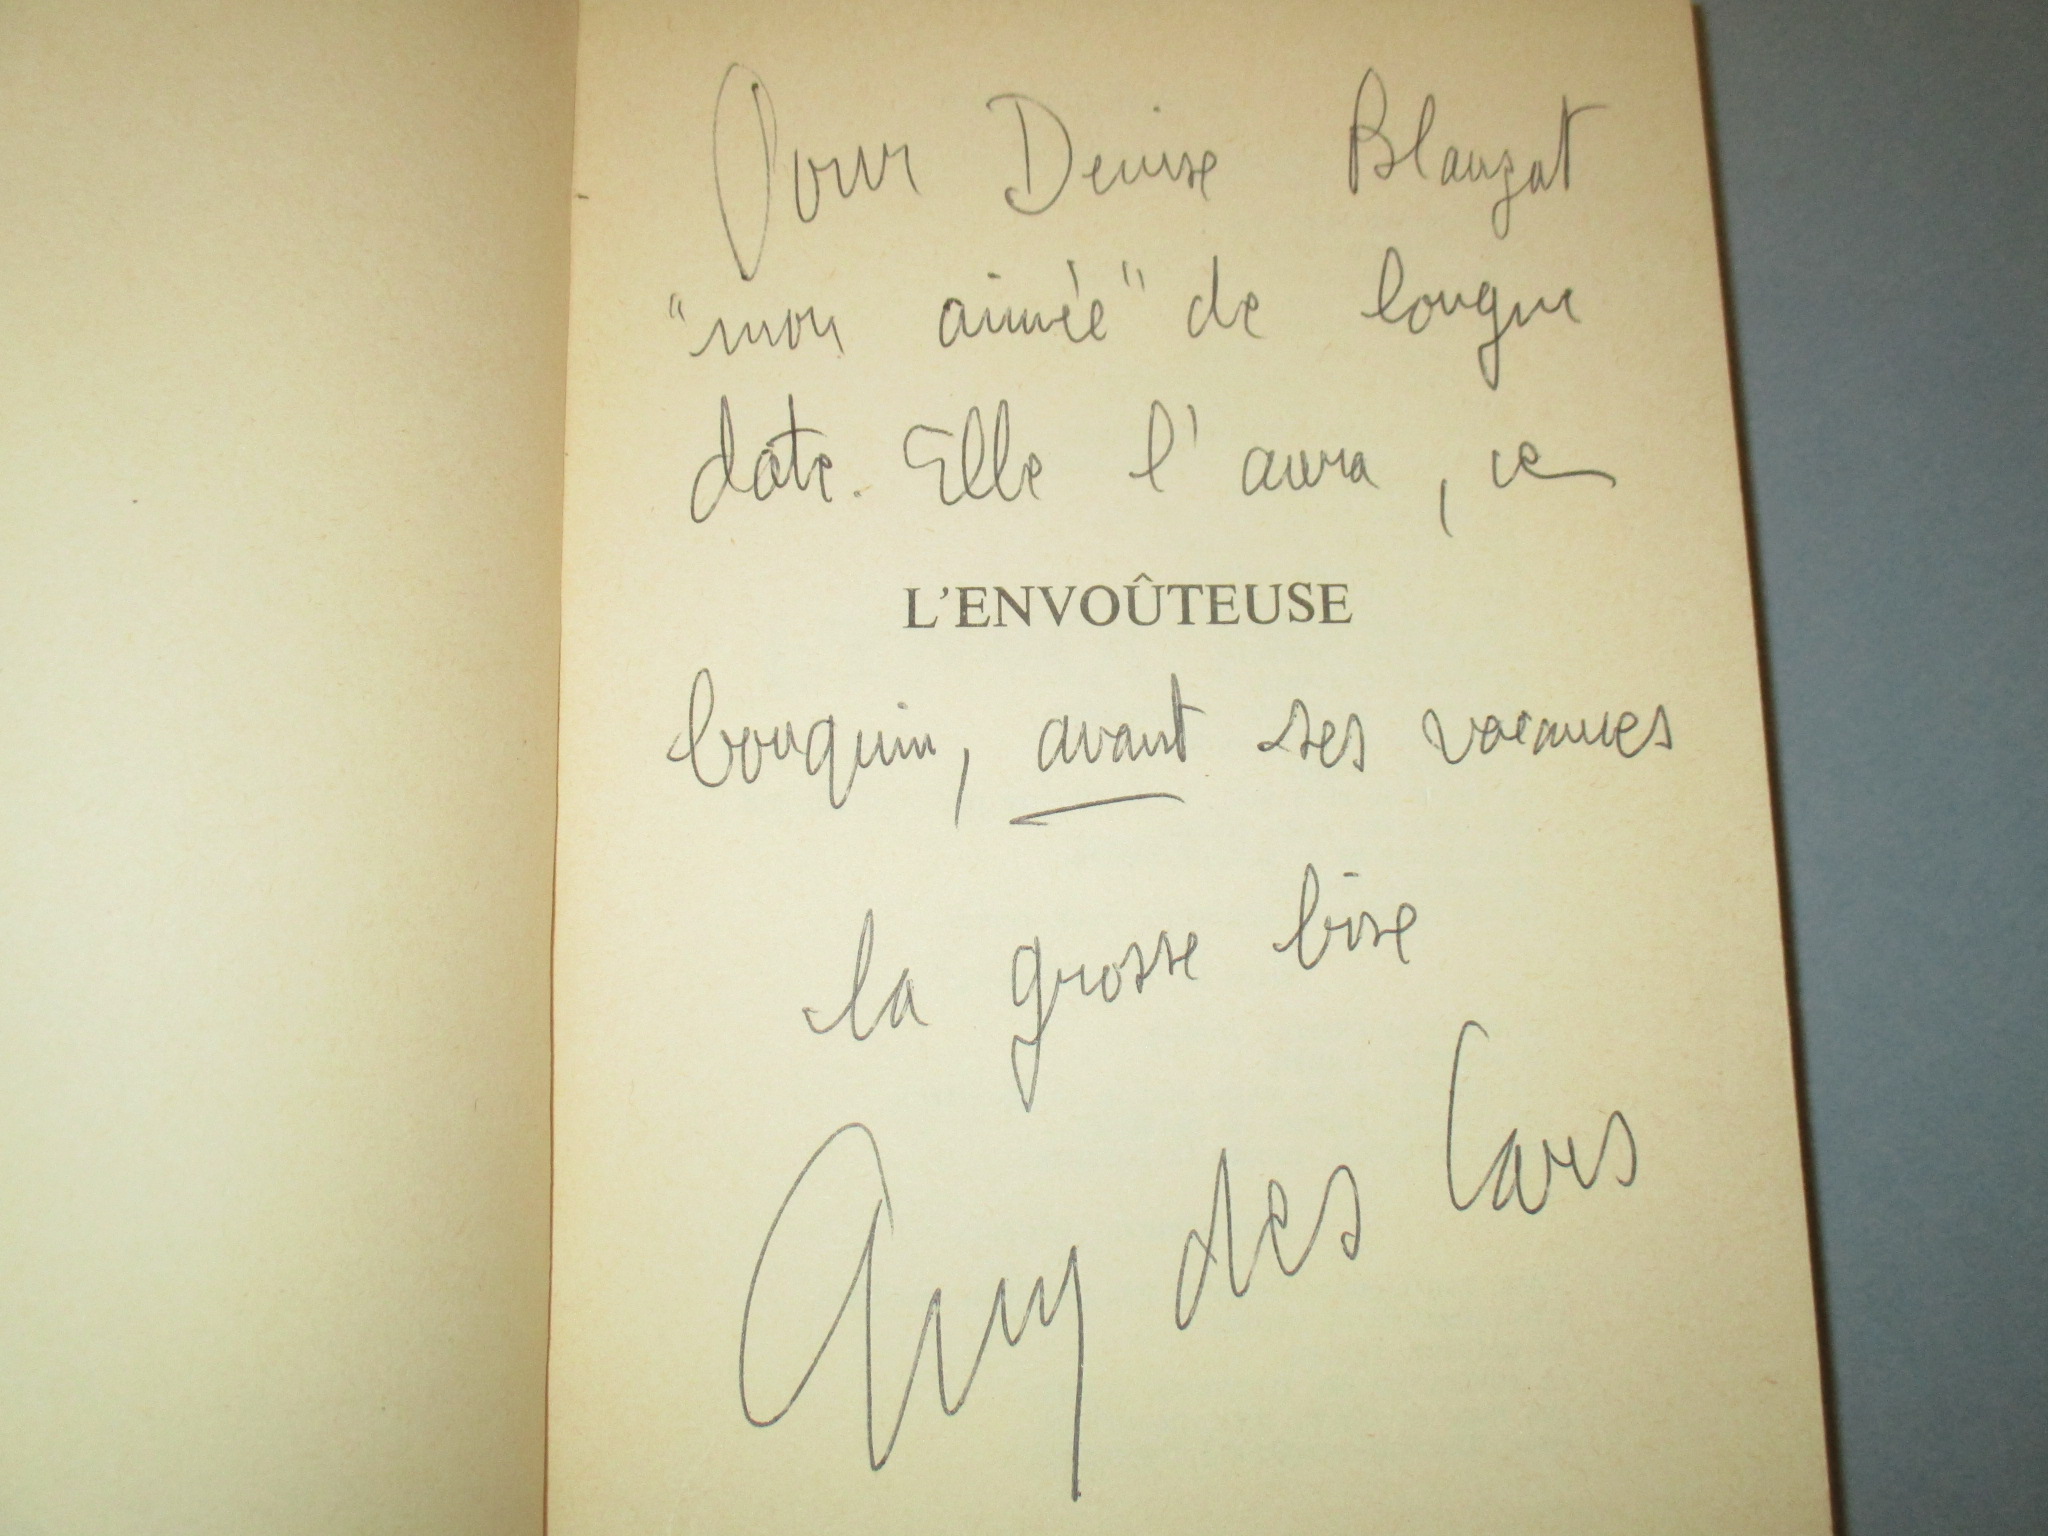 Pour Denise Blauzat
"mon aimée" de longue
date. Elle l'aura, ce
L'ENVOÛTEUSE
bouquin, avant ses vacances
la grosse bise
Guy des Cars